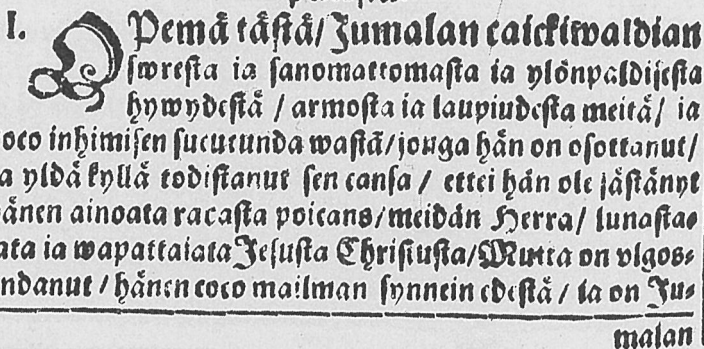 I. OPemä tästä/ Jumalan caickiwaldian
swresta ia sanomattomasta ia ylönpaldisesta
hywydestä / armosta ia laupiudesta meitä/ ia
oco inhimisen sucucunda wastä/ jonga hän on osottanut/
a yldä kyllä todistanut sen cansa / ettei hän ole jästänyt
änen ainoata racasta poicans/ meidän Herra/ lunasta-
ata ia wapattaiata Jesusta Christusta/ Mutta on vlgos-
ndanut / hänen coco mailman synnein edestä / ia on Ju-
malan